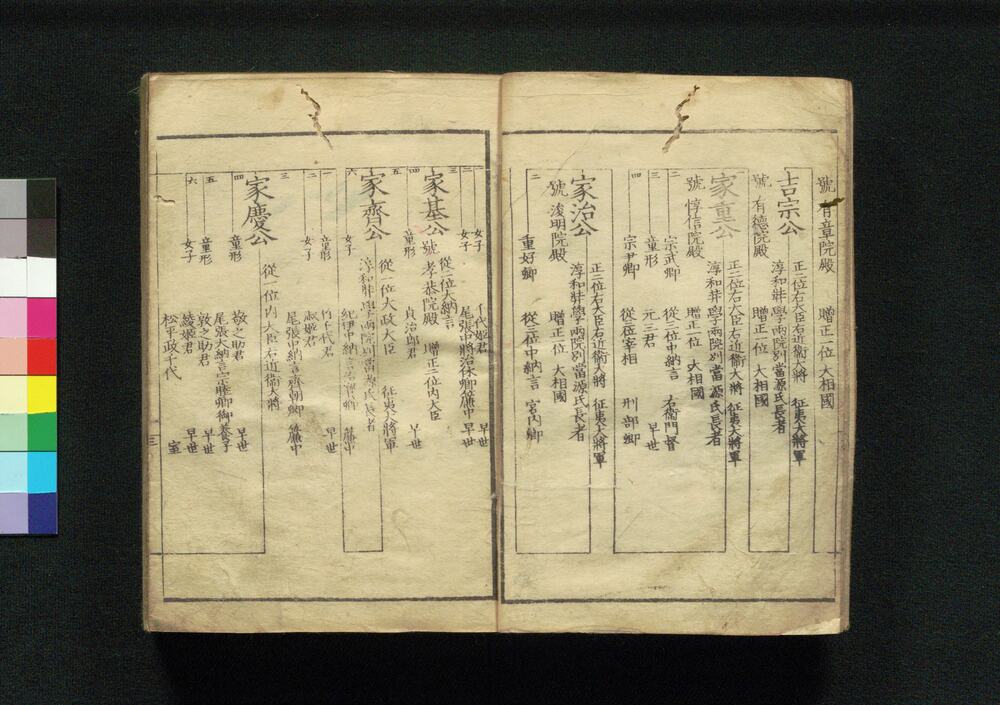 號 有章院殿 贈正一位 大相國
吉宗公 正二位右大臣右近衞大將 征夷大將軍
淳和弉學兩院別當源氏長者
號 有德院殿 贈正一位 大相國
家重公 正二位右大臣右近衞大將 征夷大將軍
淳和弉學兩院別當源氏長者
號 惇信院殿 贈正一位 大相國
二 宗武卿 從三位中納言 右衞門督
三 童形 元三君 早世
四 宗尹卿 從三位宰相 刑部卿
家治公 正二位右大臣右近衞大將 征夷大將軍
淳和弉學兩院別當源氏長者
號 浚明院殿 贈正一位 大相國
二 重好卿 從三位中納言 宮内卿
一 女子 千代姬君 早世
二 女子 尾張中將治休卿簾中 早世
三 家基公 從二位大納言
號 孝恭院殿 贈正二位内大臣
四 童形 貞治郎君 早世
五 家齊公 從一位大政大臣 征夷大將軍
淳和弉學兩院別當源氏長者
六 女子 紀伊中納言 卿 簾中
一 童形 竹千代君 早世
二 女子 淑姬君
尾張中納言齊朝卿 簾中
三 家慶公 從一位内大臣右近衞大將
四 童形 敬之助君 早世
尾張大納言宗睦卿御養子
五 童形 敦之助君 早世
六 女子 綾姬君 早世
松平政千代 室
三